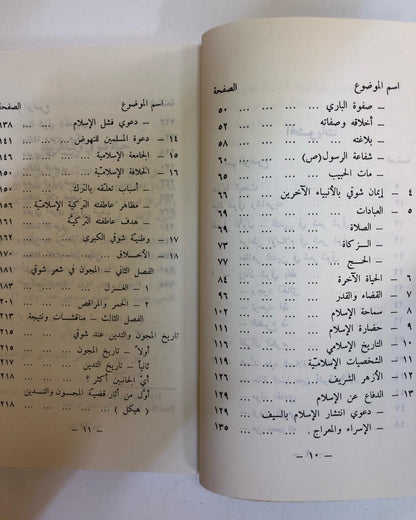 اسم الموضوع الصفحة
– صفوة الباري ... ... ... ٥٠
– أخلاقه وصفاته ... ... ... ٥٢
– بلاغته ... ... ... ٥٨
– شفاعة الرسول(ص) ... ... ... ٦٠
– مات الحبيب ... ... ... ٦٥
٤ – إيمان شوقي بالأنبياء الآخرين ٦٦
٥ – العبادات ... ... ... ٦٩
– الصلاة ... ... ... ٦٩
– الزكاة ... ... ... ٧٣
– الحج ... ... ... ٧٧
٦ – الحياة الآخرة ... ... ... ٨٤
٧ – القضاء والقدر ... ... ... ٩٦
٨ – سماحة الإسلام ... ... ...
٩ – حضارة الإسلام ... ... ...
١٠ – التاريخ الإسلامي ... ... ١١٦
١١ – الشخصيات الإسلاميّة ... ... ١١٩
١٢ – الأزهر الشريف ... ... ...
١٣ – الدفاع عن الإسلام ... ... ١٢٩
– دعوي انتشار الإسلام بالسيف ١٢٩
– الإسراء والمعراج . ... ... ١٣٥
– ١٠ –
اسم الموضوع الصفحة
– دعوي فشل الإسلام ... ... ١٣٨
١٤ – دعوة المسلمين للنهوض ... ... ١٤١
١٥ – الجامعة الإسلامية ... ...
١٦ – الخلافة الإسلامية ... ... ١٥٠
– أسباب تعلقه بالترك ... ١٥٠
– مظاهر عاطفته التركية الإسلاميّة
– هدف عاطفته التركيّة ...
١٧ – وطنيّة شوقي الكبرى ... ...
١٨ – الأخلاق ... ... ...
الفصل الثاني – المجون في شعر شوقي ١٨١
١ – الغزل ... ... ...
٢ – الخمر والمراقص ... ... ٢٠١
الفصل الثالث – مناقشات ونتيجة ٢١٣
تاريخ المجون والتدين عند شوقي ٢١٥
أولاً – تاريخ المجون ... ٢١٥
ثانياً – تاريخ التدين ...
أيّ الجانبين أكثر ؟ ... ...
أوّل من أثار قضيّة المجون والتدين
( هيكل ) ... ... ... ٢١٨
– ١١ –